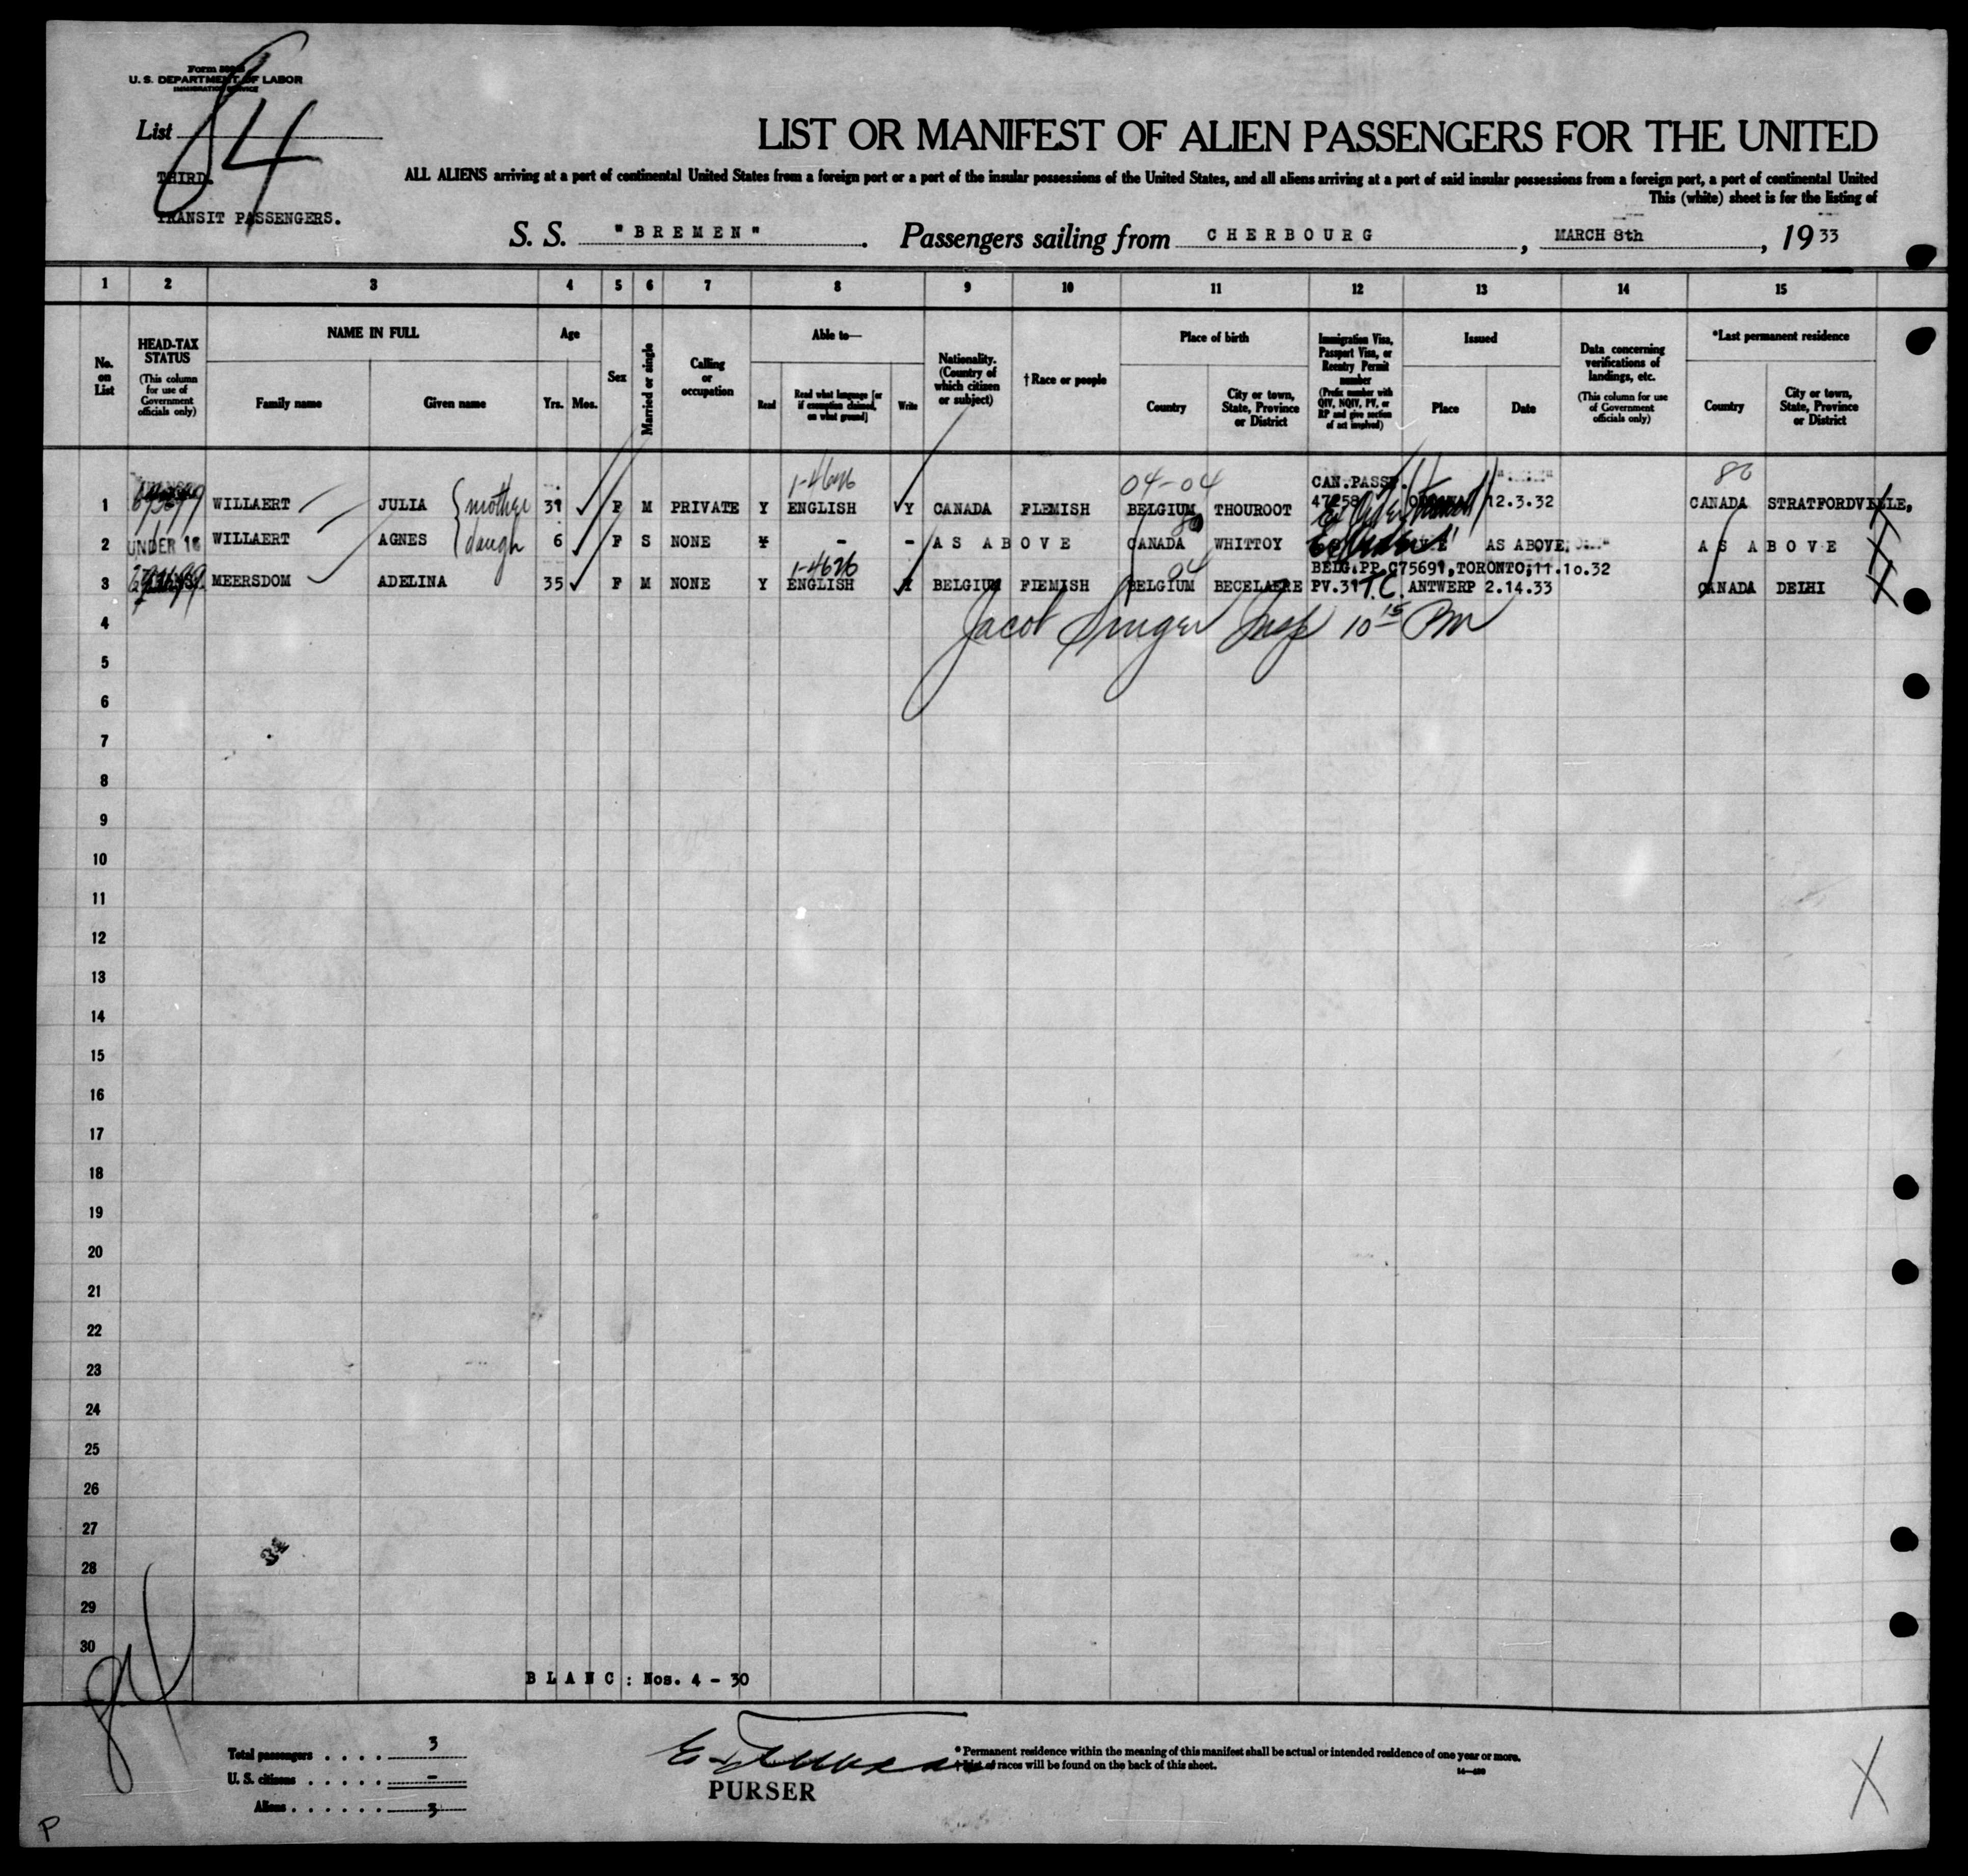 U. S. DEPARTMENT OF LABOR
IMMIGRATION SERVICE
List 84
THIRD.
TRANSIT PASSENGERS.
LIST OR MANIFEST OF ALIEN PASSENGERS FOR THE UNITED
ALL ALIENS arriving at a port of continental United States from a foreign port or a port of the insular possessions of the United States, and all aliens arriving at a port of said insular possessions from a foreign port, a port of continental United
This (white) sheet is for the listing of
S. S. "BREMEN". Passengers sailing from CHERBOURG, MARCH 8th, 19 33
1 2 3 4 5 6 7 8 9 10 11 12 13 14 15
No. on List
HEAD-TAX STATUS (This column for use of Government officials only)
NAME IN FULL
Family name Given name
Age
Yrs. Mos.
Sex
Married or single
Calling or occupation
Able to—
Read Read what language [or if exemption claimed, on what ground] Write
Nationality. (Country of which citizen or subject)
†Race or people
Place of birth
Country City or town, State, Province or District
Immigration Visa, Passport Visa, or Reentry Permit number (Prefix number with QIV, NQIV, PV, or RP and give section of act involved)
Issued
Place Date
Data concerning verifications of landings, etc. (This column for use of Government officials only)
*Last permanent residence
Country City or town, State, Province or District
04-04 CAN.PASSP. 80
1 WILLAERT JULIA mother 39 F M PRIVATE Y ENGLISH Y CANADA FLEMISH BELGIUM THOUROOT 12.3.32 CANADA STRATFORDVILLE,
2 UNDER 16 WILLAERT AGNES daugh 6 F S NONE - - AS ABOVE CANADA WHITTOY AS ABOVE, AS ABOVE
BELG.PP C75691, TORONTO, 11.10.32
3 MEERSDOM ADELINA 35 F M NONE Y ENGLISH Y BELGIUM FLEMISH BELGIUM BECELAERE PV.31 T.C. ANTWERP 2.14.33 CANADA DELHI
4 Jacob Singer Insp 10 15 PM
5
6
7
8
9
10
11
12
13
14
15
16
17
18
19
20
21
22
23
24
25
26
27
28
29
30
BLANC: Nos. 4 - 30
Total passengers . . . . 3
U. S. citizens . . . . . -
Aliens . . . . . . 3
PURSER
* Permanent residence within the meaning of this manifest shall be actual or intended residence of one year or more.
† List of races will be found on the back of this sheet.
P
X